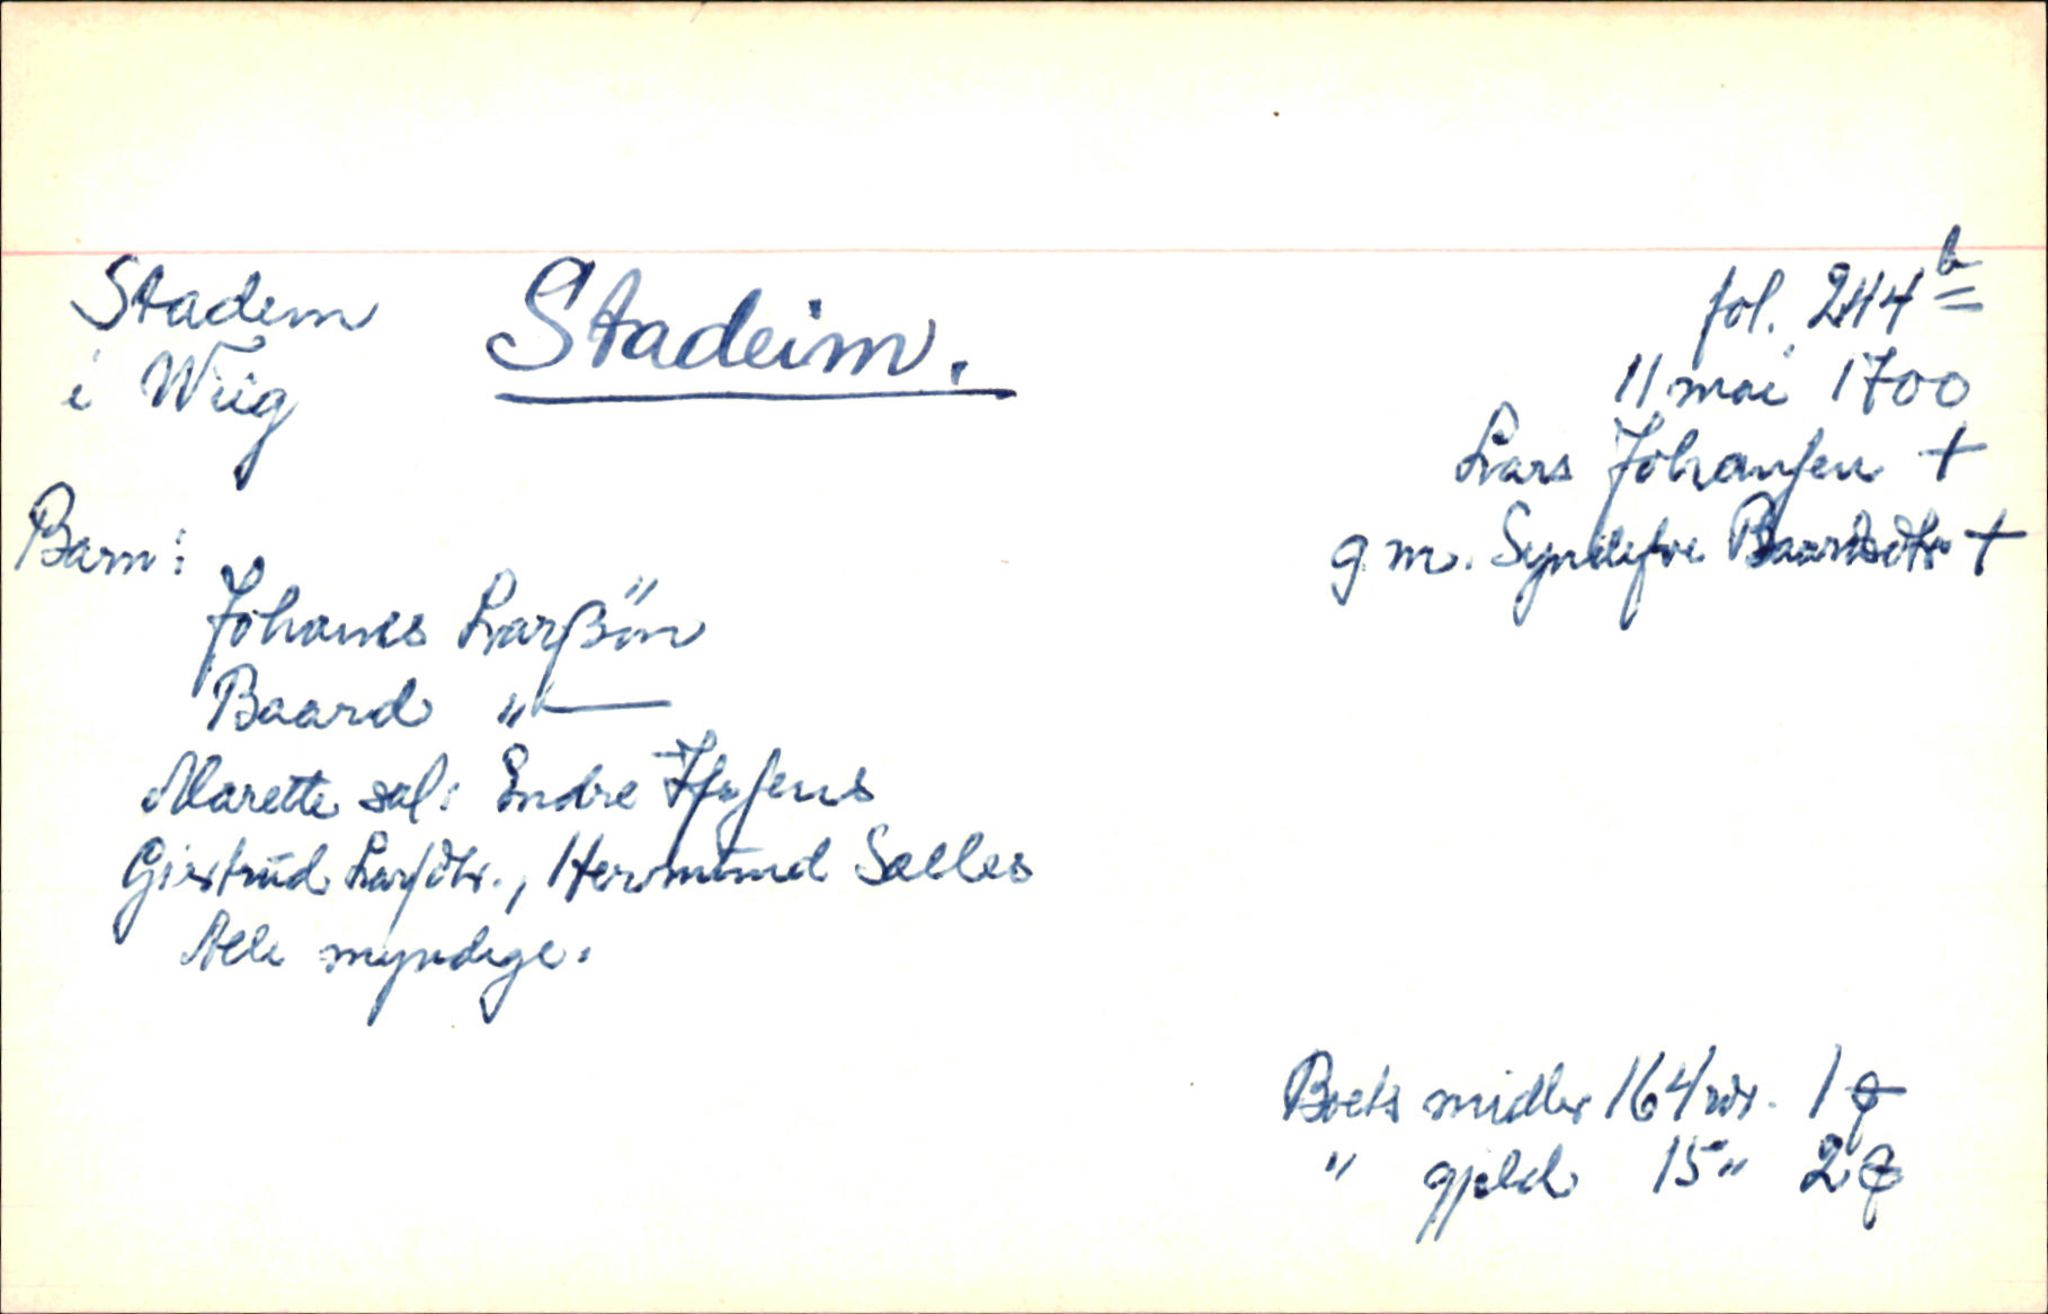 Stadem
i Wiig
Stadeim.
fol. 244 b
11 mai 1700
Lars Johansen +
g.m. Syndefve Baardsdtr +
Barn:
Johanes Larßön
Baard "—
Marette sal: Endre
Giertrud Larsdtr., Hermund Sælles
Alle myndige.
Boets midler 164 rdr. 1 ꝗ
" gjeld 15 " 2 ꝗ